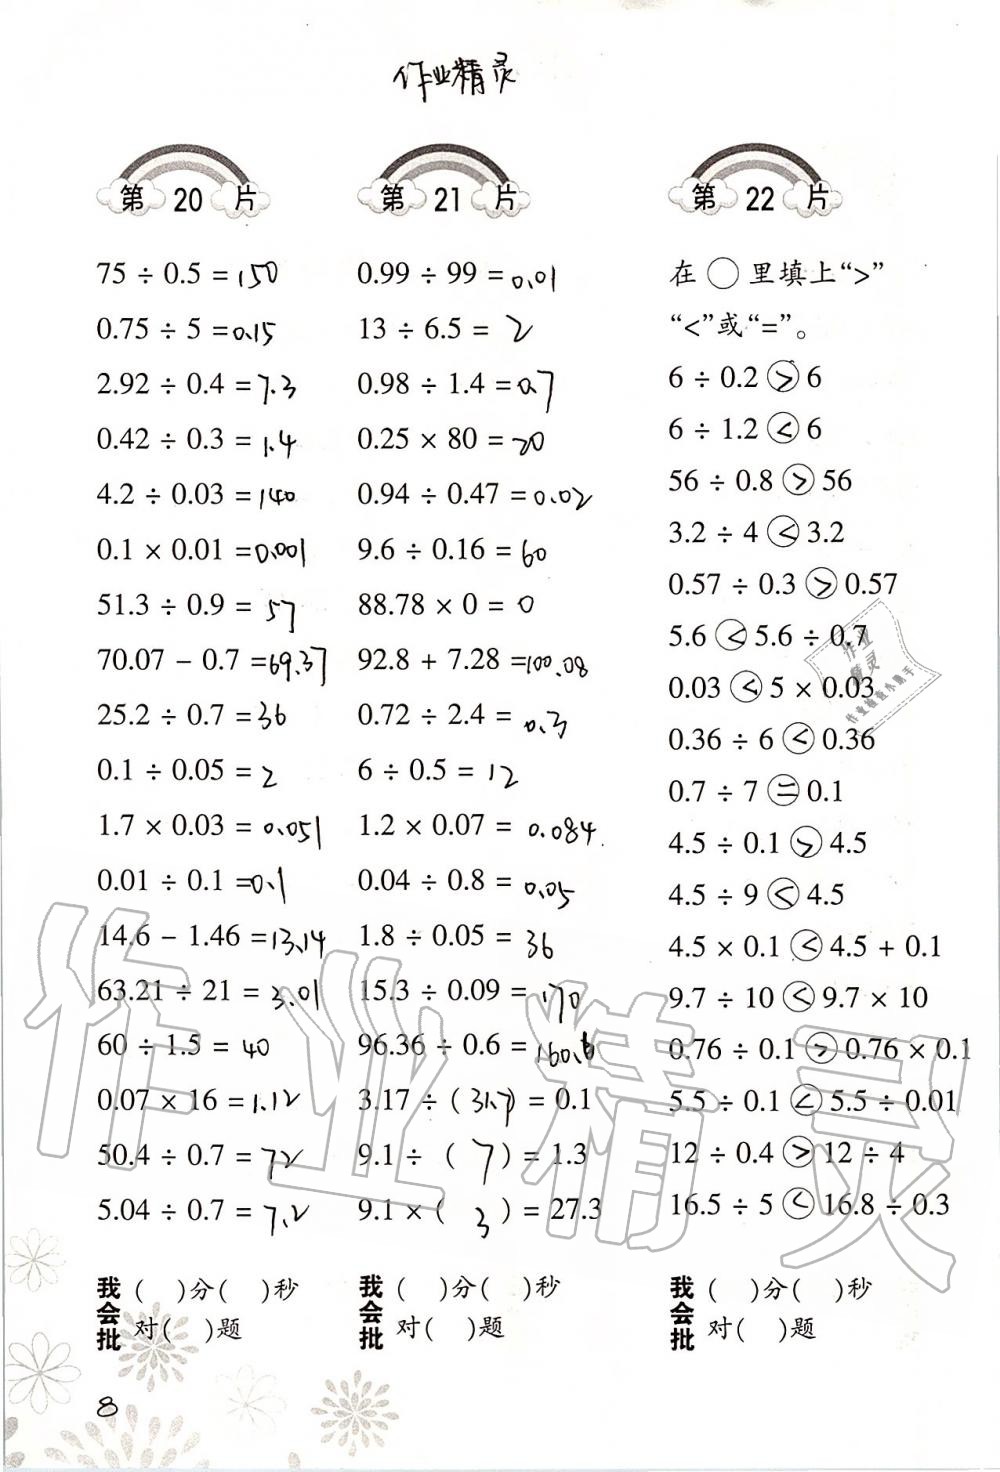 作业精灵
第 20 片
75 ÷ 0.5 = 150
0.75 ÷ 5 = 0.15
2.92 ÷ 0.4 = 7.3
0.42 ÷ 0.3 = 1.4
4.2 ÷ 0.03 = 140
0.1 × 0.01 = 0.001
51.3 ÷ 0.9 = 57
70.07 − 0.7 = 69.37
25.2 ÷ 0.7 = 36
0.1 ÷ 0.05 = 2
1.7 × 0.03 = 0.051
0.01 ÷ 0.1 = 0.1
14.6 − 1.46 = 13.14
63.21 ÷ 21 = 3.01
60 ÷ 1.5 = 40
0.07 × 16 = 1.12
50.4 ÷ 0.7 = 72
5.04 ÷ 0.7 = 7.2
我会批
( )分( )秒
对( )题
第 21 片
0.99 ÷ 99 = 0.01
13 ÷ 6.5 = 2
0.98 ÷ 1.4 = 0.7
0.25 × 80 = 20
0.94 ÷ 0.47 = 0.02
9.6 ÷ 0.16 = 60
88.78 × 0 = 0
92.8 + 7.28 = 100.08
0.72 ÷ 2.4 = 0.3
6 ÷ 0.5 = 12
1.2 × 0.07 = 0.084
0.04 ÷ 0.8 = 0.05
1.8 ÷ 0.05 = 36
15.3 ÷ 0.09 = 170
96.36 ÷ 0.6 = 160.6
3.17 ÷ ( 31.7 ) = 0.1
9.1 ÷ ( 7 ) = 1.3
9.1 × ( 3 ) = 27.3
我会批
( )分( )秒
对( )题
第 22 片
在 ○ 里填上“>”
“<”或“=”。
6 ÷ 0.2 > 6
6 ÷ 1.2 < 6
56 ÷ 0.8 > 56
3.2 ÷ 4 < 3.2
0.57 ÷ 0.3 > 0.57
5.6 < 5.6 ÷ 0.7
0.03 < 5 × 0.03
0.36 ÷ 6 < 0.36
0.7 ÷ 7 = 0.1
4.5 ÷ 0.1 > 4.5
4.5 ÷ 9 < 4.5
4.5 × 0.1 < 4.5 + 0.1
9.7 ÷ 10 < 9.7 × 10
0.76 ÷ 0.1 > 0.76 × 0.1
5.5 ÷ 0.1 < 5.5 ÷ 0.01
12 ÷ 0.4 > 12 ÷ 4
16.5 ÷ 5 < 16.8 ÷ 0.3
我会批
( )分( )秒
对( )题
8
作业精灵
作业精灵